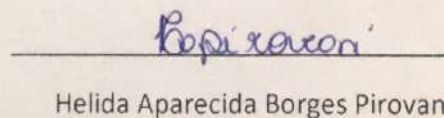 Helida Aparecida Borges Pirovan